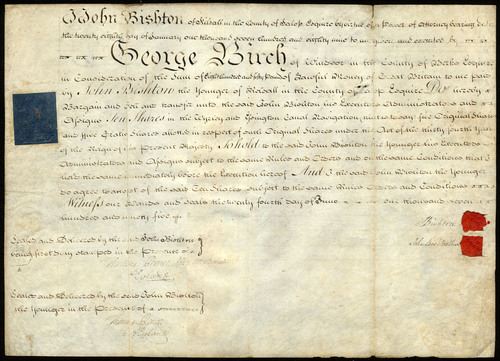 I John Bishton of Kilsall in the County of Salop Esquire by virtue of a Power of Attorney bearing date
the twenty eighth day of January one thousand seven hundred and eighty nine to me given and executed by
George Birch of Windsor in the County of Berks Esquire
in Consideration of the Sum of Eight hundred and fifty Pounds of Lawful Money of Great Britain to me paid
by John Bishton the Younger of Kilsall in the County of Salop Esquire Do hereby
Bargain and Sell and transfer unto the said John Bishton his Executors Administrators and
Assigns Ten Shares in the Navigation five Original Shares
and five Gratis Shares allotted in respect of such Original Shares under the Act of the thirty fourth Year
of the Reign of his Present Majesty To hold to the said John Bishton the Younger his Executors
Administrators and Assigns subject to the same Rules and Orders and on the same Conditions that I
held the same immediately before the Execution hereof And I the said John Bishton the Younger
do agree to accept of the said Ten Shares subject to the same Rules Orders and Conditions
Witness our Hands and Seals the twenty fourth day of June one thousand seven
hundred and ninety five
Bishton
Sealed and Delivered by the said John Bishton
being first duly stamped in the Presence of
Sealed and Delivered by the said John Bishton
the Younger in the Presence of